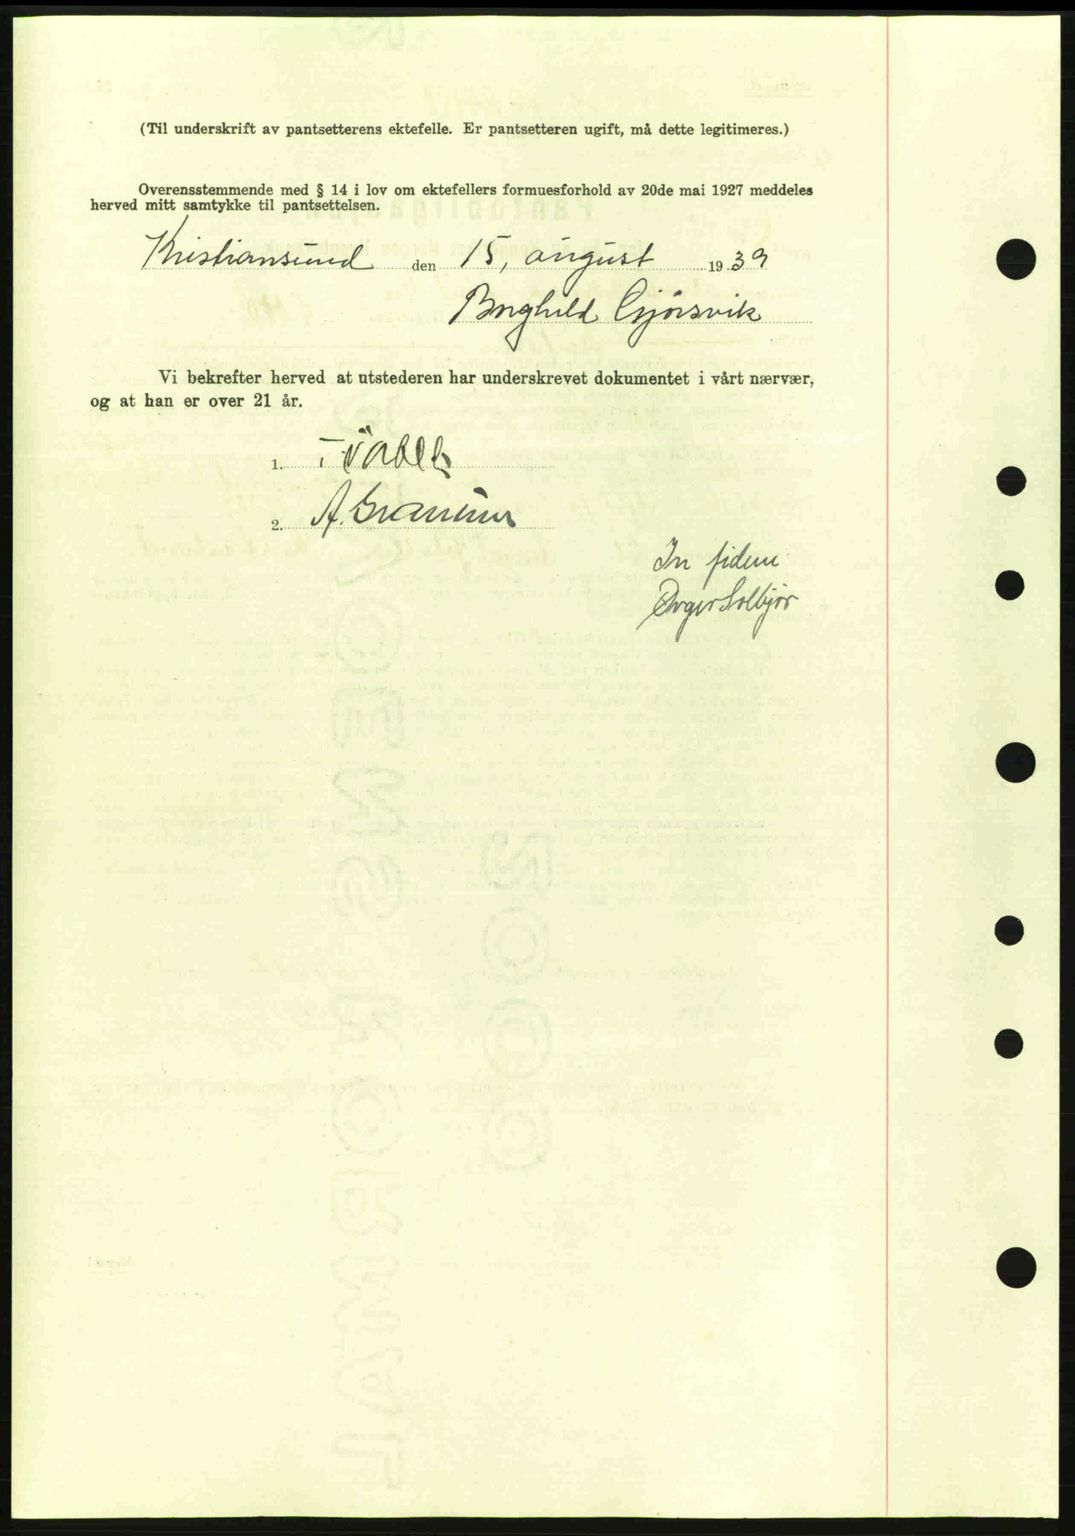 (Til underskrift av pantsetterens ektefelle. Er pantsetteren ugift, må dette legitimeres.)
Overensstemmende med § 14 i lov om ektefellers formuesforhold av 20de mai 1927 meddeles
herved mitt samtykke til pantsettelsen.
Kristiansund den 15, august 1939
Borghild Gjørsvik
Vi bekrefter herved at utstederen har underskrevet dokumentet i vårt nærvær,
og at han er over 21 år.
1.
2. A.
In fidem
Solbjør